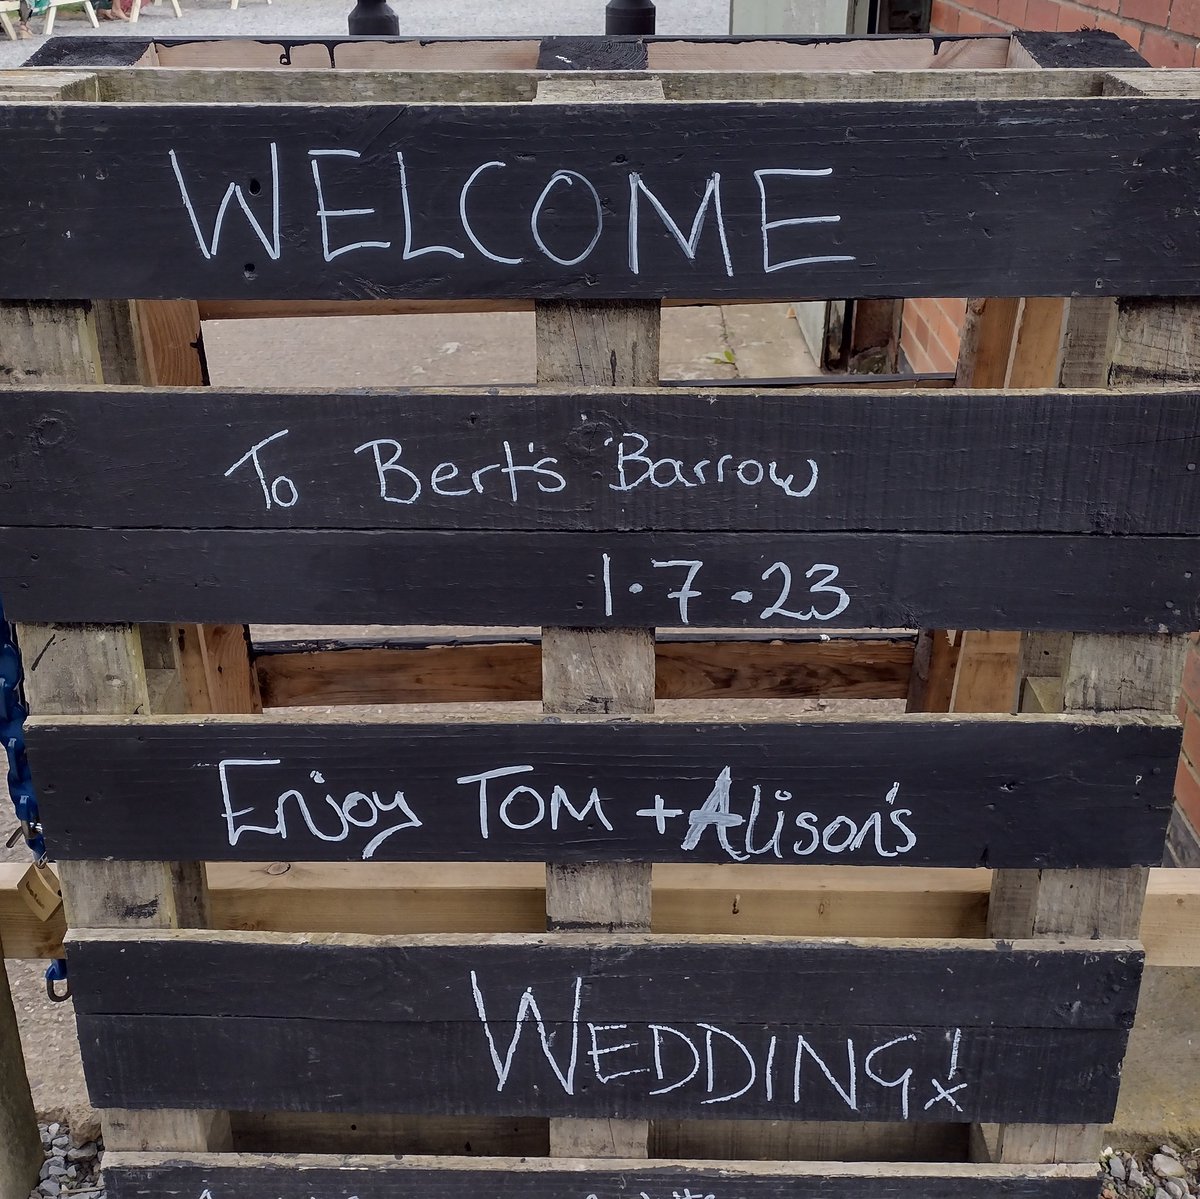 WELCOME
To Bert's Barrow
1.7.23
Enjoy TOM + Alison's
WEDDING!